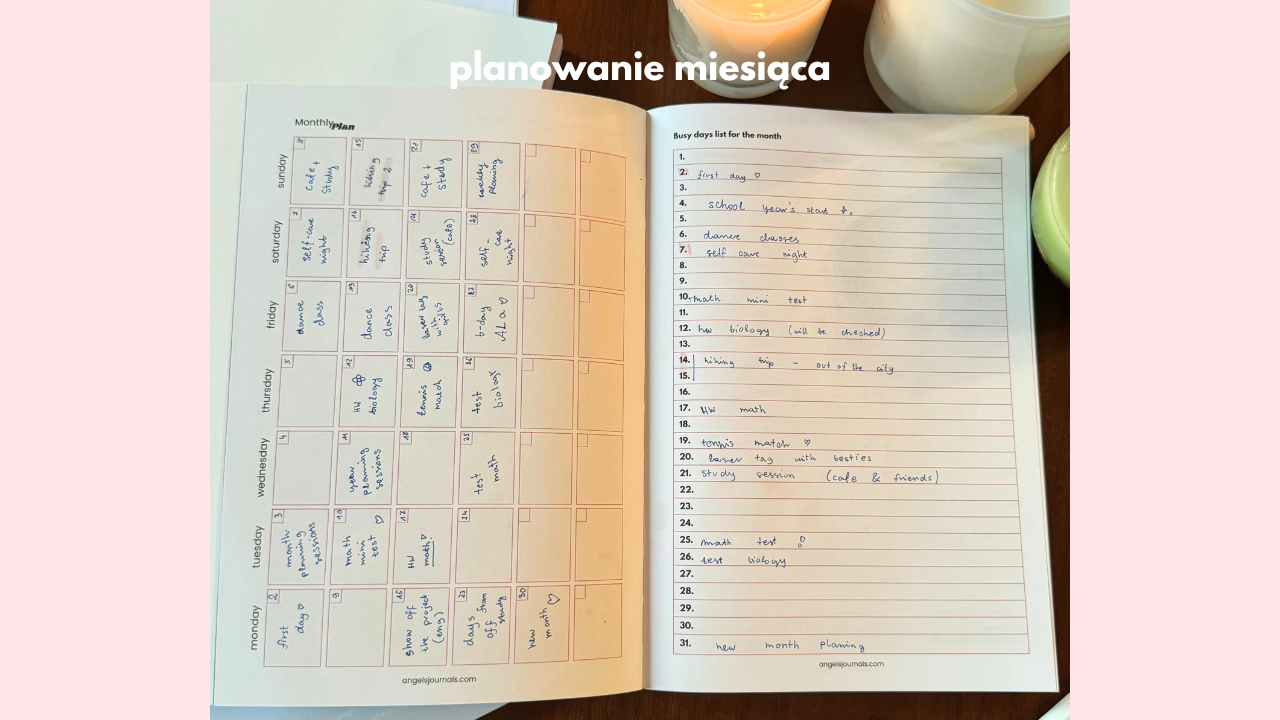 planowanie miesiąca
Monthly Plan
monday
tuesday
wednesday
thursday
friday
saturday
sunday
2
first
day ♡
3
month
planning
sessions
4
5
6
dance
class
7
self-care
night
8
cafe +
study
9
10
math
mini
test ♡
11
year
planning
sessions
12
HW
biology
13
dance
class
14
hiking
trip
15
hiking
trip 2
16
show off
the project
(eng)
17
HW
math
18
19
tennis
match
20
laser tag
with
21
study
session
(cafe)
22
cafe +
study
23
days from
off
study
24
25
test
math
26
test
biology
27
b-day
ALA ♡
28
self-
care
night
29
weekly
planing
30
new
month ♡
angelsjournals.com
Busy days list for the month
1.
2. first day ♡
3.
4. school year's start
5.
6. dance classes
7. self care night
8.
9.
10. math mini test
11.
12. hw biology (will be checked)
13.
14. hiking trip - out of the city
15.
16.
17. HW math
18.
19. tennis match ♡
20. laser tag with besties
21. study session (cafe & friends)
22.
23.
24.
25. math test !
26. test biology
27.
28.
29.
30.
31. new month planing
angelsjournals.com